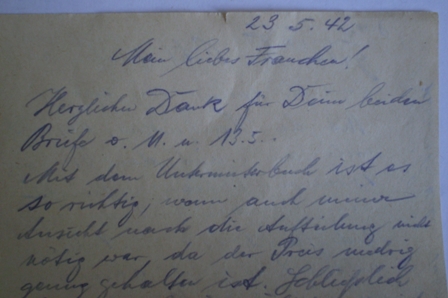 23.5.42
Mein liebes Frauchen!
Herzlichen Dank für Deine beiden
Briefe v. 11. u. 13.5.
Mit dem ist es
so richtig, wenn auch meiner
Ansicht nach die Aufteilung nicht
nötig war, da der Preis niedrig
genug gehalten ist.